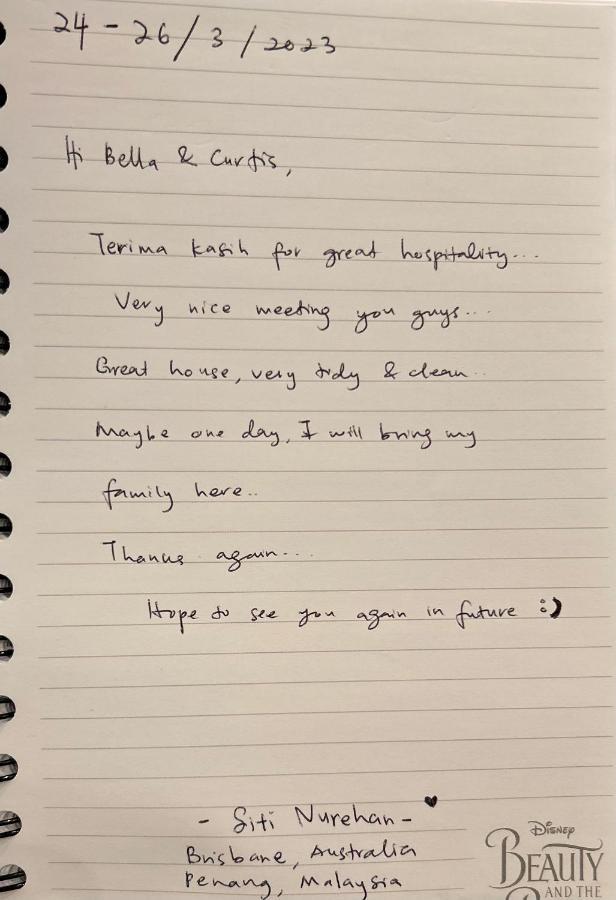 24 - 26/3/2023
Hi Bella & Curtis,
Terima kasih for great hospitality...
Very nice meeting you guys...
Great house, very tidy & clean..
Maybe one day, I will bring my
family here..
Thanks again...
Hope to see you again in future :)
- Siti Nurehan - ♥
Brisbane, Australia
Penang, Malaysia
DISNEY
BEAUTY
AND THE